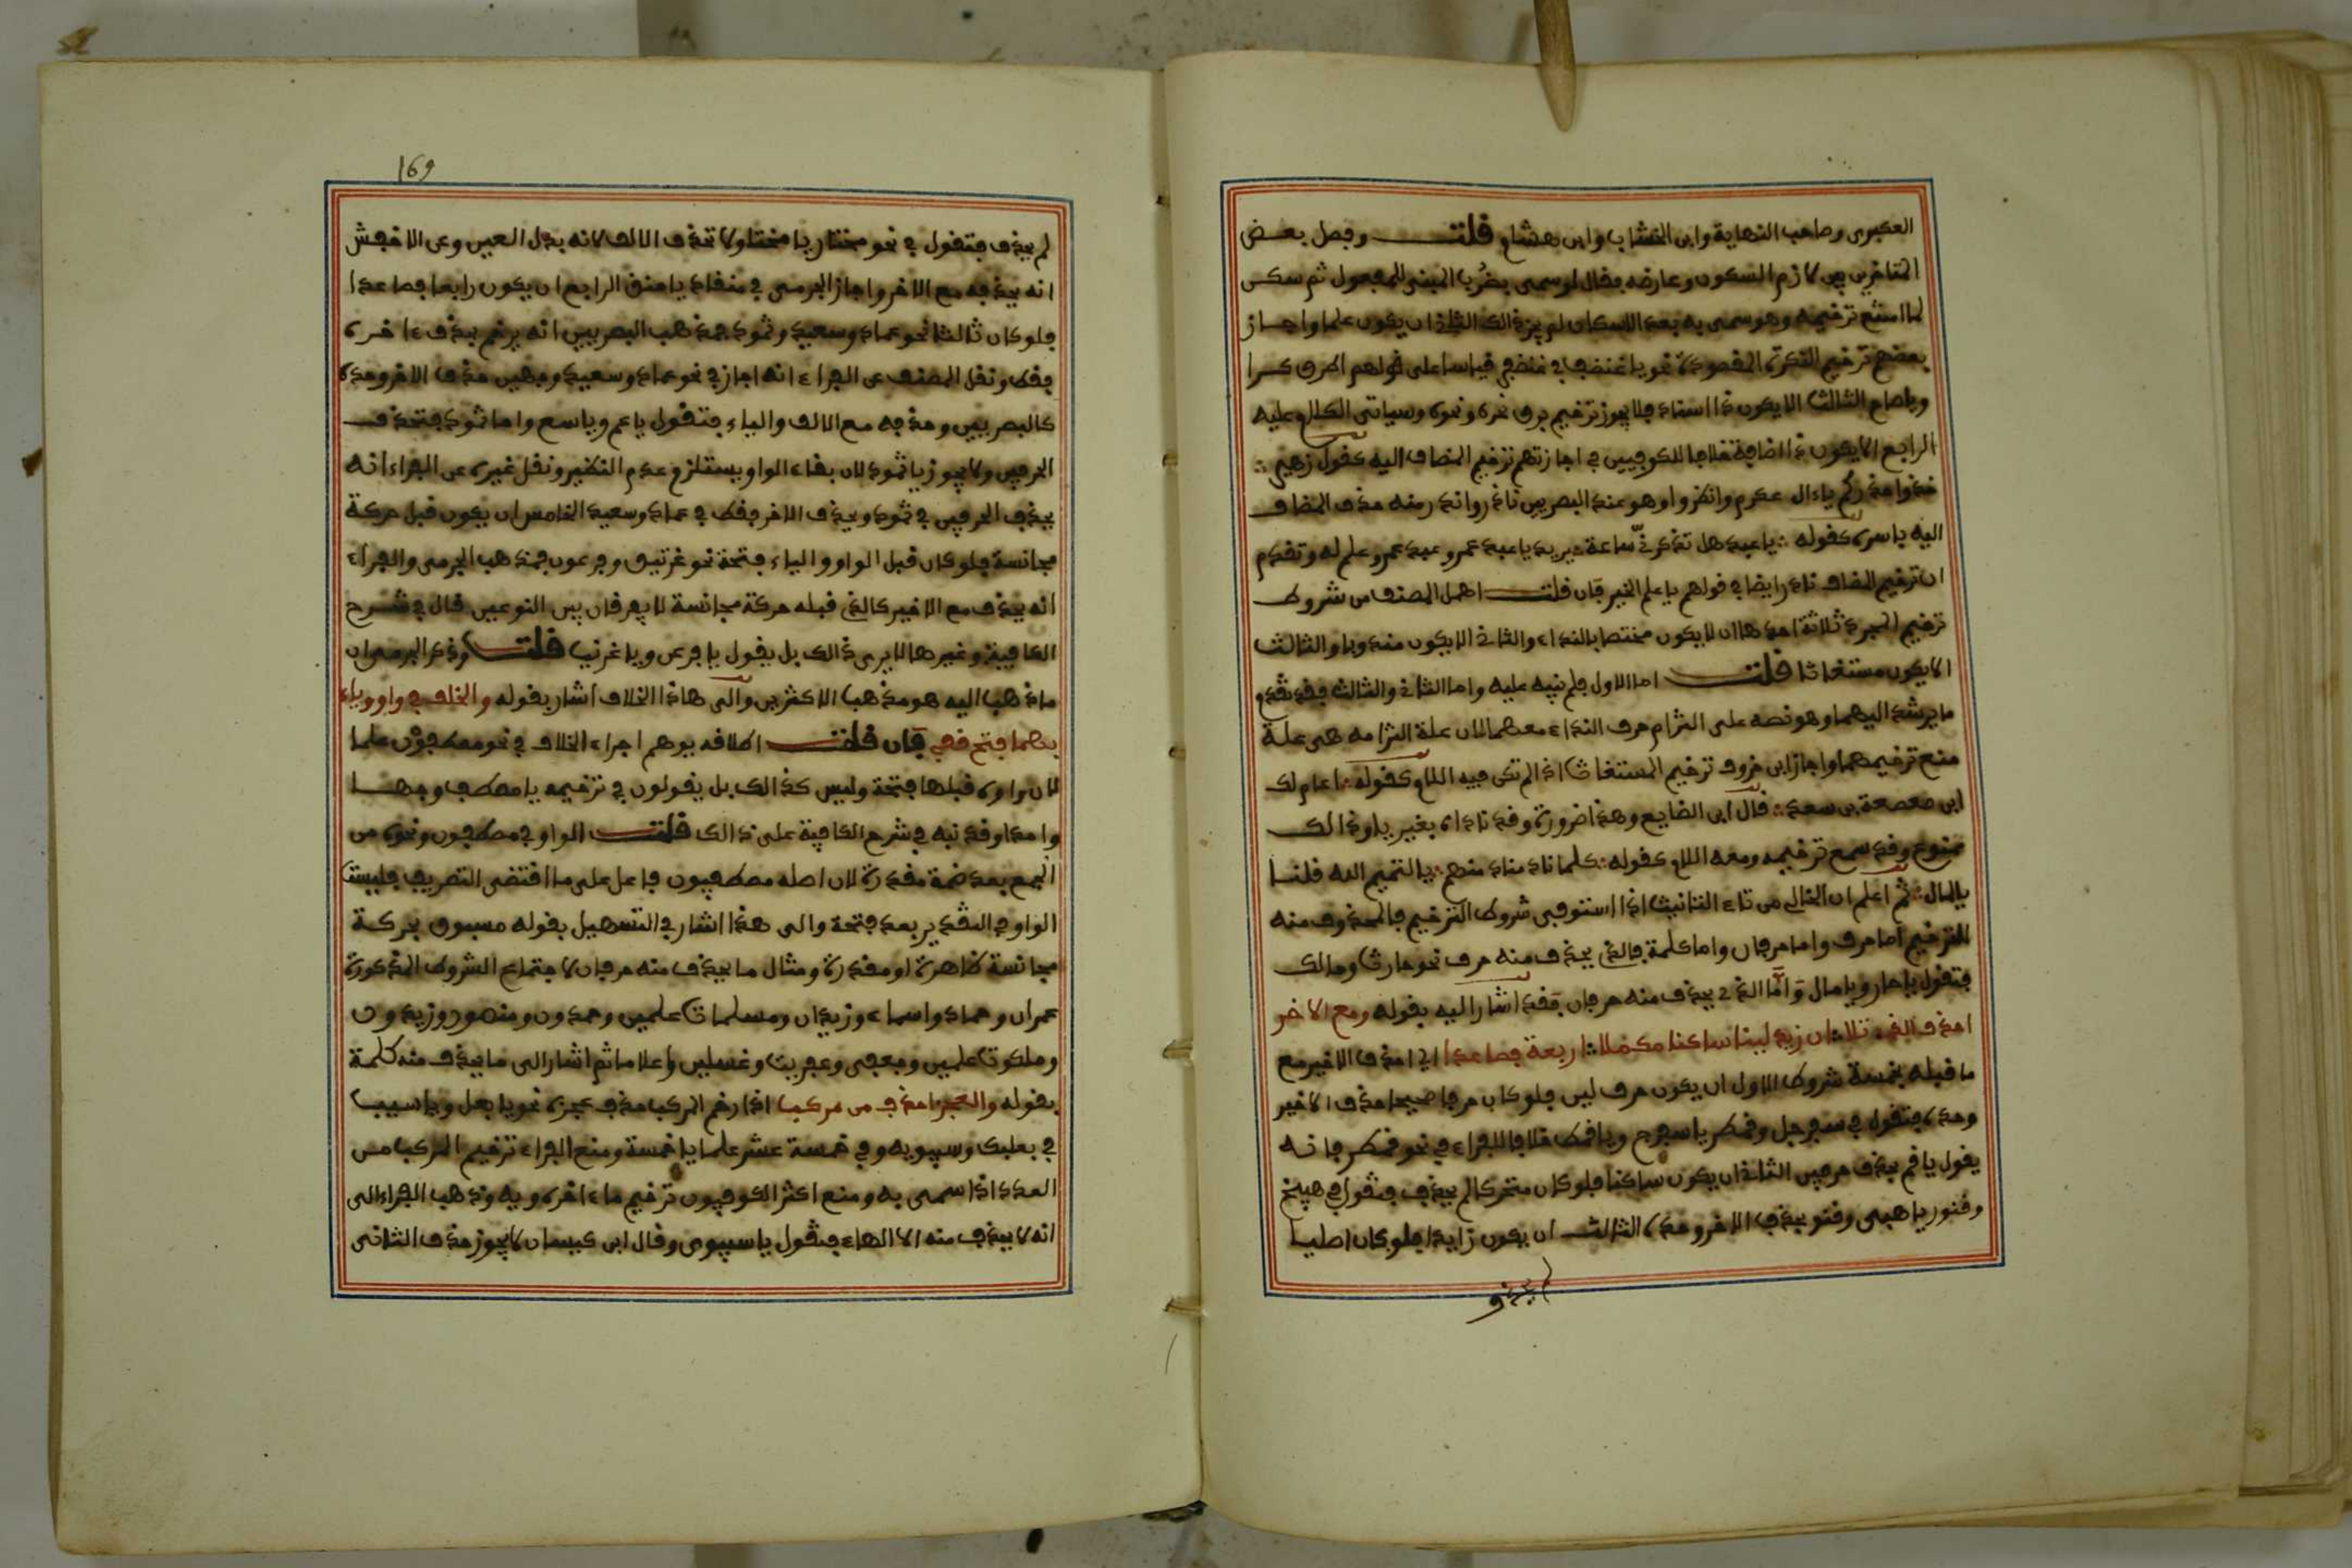 العكبرى وصاحب النهاية وابن الخشاب وابن هشام قلت وفصل بعض
المتاخرين بين لازم السكون وعارضه فقال لو سمى بضرب المبنى للمفعول ثم سكن
لما امتنع ترخيمه وهو سمى به بعد الاسكان لم يجز ذالك الثانى ان يكون علما واجاز
بعضهم ترخيم النكرة المقصودة نحو يا غضنف في غضنفر قياسا على قولهم اطرق كرا
ويا صاح الثالث الا يكون ذا اسناد فلا يجوز ترخيم برق نحره ونحوه وسياتى الكلام عليه
الرابع الا يكون ذا اضافة خلافا للكوفيين في اجازتهم ترخيم المضاف اليه كقول زهير
خذوا حذركم ياءال عكرم واذكروا وهو عند البصريين نادر واندر منه حذف المضاف
اليه باسره كقوله يا عبد هل تذكرنى ساعة يريد يا عبد عمرو وعبد عمرو علم له وتقدم
ان ترخيم المضاف نادر ايضا في قولهم يا علم الخير فان قلت اهمل المصنف من شروط
ترخيم المجرد ثلاثة احدها ان لا يكون مختصا بالنداء والثانى الا يكون مندوبا والثالث
الا يكون مستغاثا قلت اما الاول فلم ينبه عليه واما الثانى والثالث فقد تقدم
ما يرشد اليهما وهو نصه على التزام حرف النداء معهما لان علة التزامه هى علة
منع ترخيمهما واجاز ابن خروف ترخيم المستغاث اذا لم تكن فيه اللام كقوله اعام لك
ابن صعصعة بن سعد قال ابن الضايع وهذا ضرورة وقد ناداه بغير يا وذالك
ممنوع وقد سمع ترخيمه ومعه اللام كقوله كلما نادى مناد منهم يا لتيم الله قلنا
يا لمال ثم اعلم ان الخالى من تاء التانيث اذا استوفى شروط الترخيم فالمحذوف منه
للترخيم اما حرف واما حرفان واما كلمة فالذى يحذف منه حرف نحو حارث ومالك
فتقول يا حار ويا مال وأما الذى يحذف منه حرفان فقد اشار اليه بقوله ومع الاخر
احذف الذى تلا ان زيد لينا ساكنا مكملا اربعة فصاعدا اى احذف الاخير مع
ما قبله بخمسة شروط الاول ان يكون حرف لين فلو كان حرفا صحيحا حذف الاخير
وحده فتقول في سفرجل وقمطر يا سفرج ويا قمط خلافا للفراء في نحو قمطر فانه
يقول يا قم بحذف حرفين الثانى ان يكون ساكنا فلو كان متحركا لم يحذف فتقول في هبيخ
وقنور يا هبى وقنو بحذف الاخر وحده الثالث ان يكون زايدا فلو كان اصليا
لم يحذف
169
لم يحذف فتقول في نحو مختار يا مختا ولا تحذف الالف لانه بدل العين وعن الاخفش
انه يحذفه مع الاخر واجاز الجرمى في منقاد يا منق الرابع ان يكون رابعا فصاعدا
فلو كان ثالثا نحو عماد وسعيد وثمود فمذهب البصريين انه يرخم بحذف ءاخره
فقط ونقل المصنف عن الفراء انه اجاز في نحو عماد وسعيد وجهين حذف الاخر وحده
كالبصريين وحذفه مع الالف والياء فتقول يا عم ويا سع واما ثمود فتحذف
الحرفين ولا يجوز يا ثمو لان بقاء الواو يستلزم عدم النظير ونقل غيره عن الفراء انه
يحذف الحرفين في ثمود ويحذف الاخر فقط في عماد وسعيد الخامس ان يكون قبل حركة
مجانسة فلو كان قبل الواو والياء فتحة نحو غرنيق وفرعون فمذهب الجرمى والفراء
انه يحذف مع الاخير كالذى قبله حركة مجانسة لا يعرفان بين النوعين قال في شرح
الكافية وغيرها لا يرى ذالك بل يقول يا فرعو ويا غرنى قلت وذكر الجرمى ان
ما ذهب اليه هو مذهب الاكثرين والى هاذا الخلاف اشار بقوله والخلف في واو وياء
بهما فتح قفى فان قلت اطلاقه يوهم اجراء الخلاف في نحو مصطفون علما
لان واوه قبلها فتحة وليس كذالك بل يقولون في ترخيمه يا مصطف وجها
واحدا وقد نبه في شرح الكافية على ذالك قلت الواو في مصطفون ونحوه من
الجمع بعد ضمة مقدرة لان اصله مصطفيون فاعل على ما اقتضى التصريف فليست
الواو في التقدير بعد فتحة والى هذا اشار في التسهيل بقوله مسبوق بحركة
مجانسة ظاهرة او مقدرة ومثال ما يحذف منه حرفان لاجتماع الشروط المذكورة
عمران وحماد واسماء وزيدان ومسلمات علمين وحمدون ومنصور وزيدون
وملكوت علمين وعفريت وغسلين اعلاما ثم اشار الى ما يحذف منه كلمة
بقوله والعجز احذف من مركب اذا رخم المركب حذف عجزه نحو يا بعل ويا سيب
في بعلبك وسيبويه وفي خمسة عشر علما يا خمسة ومنع الفراء ترخيم المركب من
العدد اذا سمى به ومنع اكثر الكوفيون ترخيم ما ءاخره ويه وذهب الفراء الى
انه لا يحذف منه الا الهاء فتقول يا سيبوى وقال ابن كيسان لا يجوز حذف الثانى